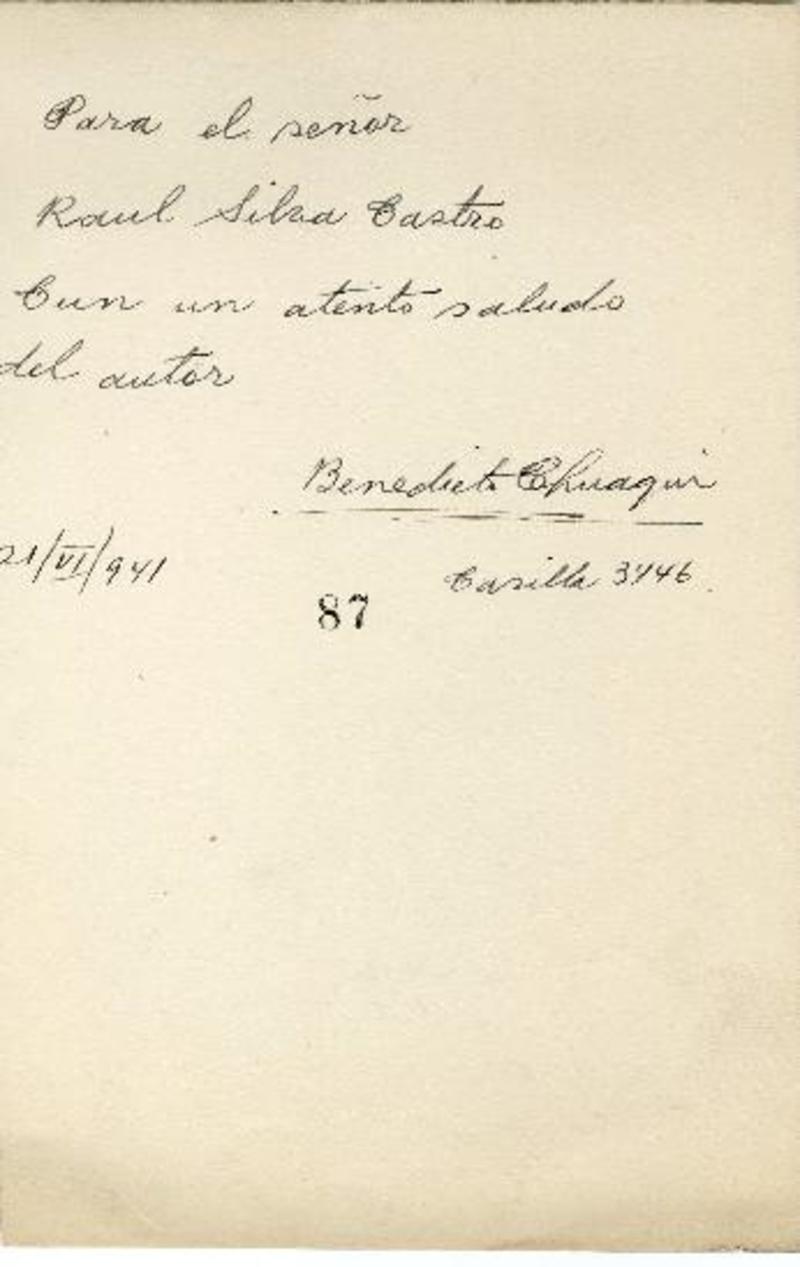 Para el señor
Raul Silva Castro
Cun un atento saludo
del autor
Benedicto Chuaqui
21/VI/941
Casilla 3746.
87